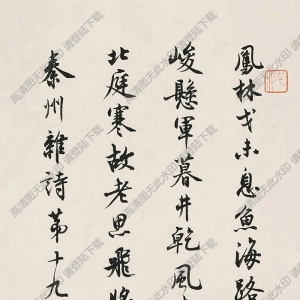 鳳林戈未息魚海路
峻懸軍暮井乾風
北庭寒故老思飛將
秦州雜詩第十九
高清图无此水印